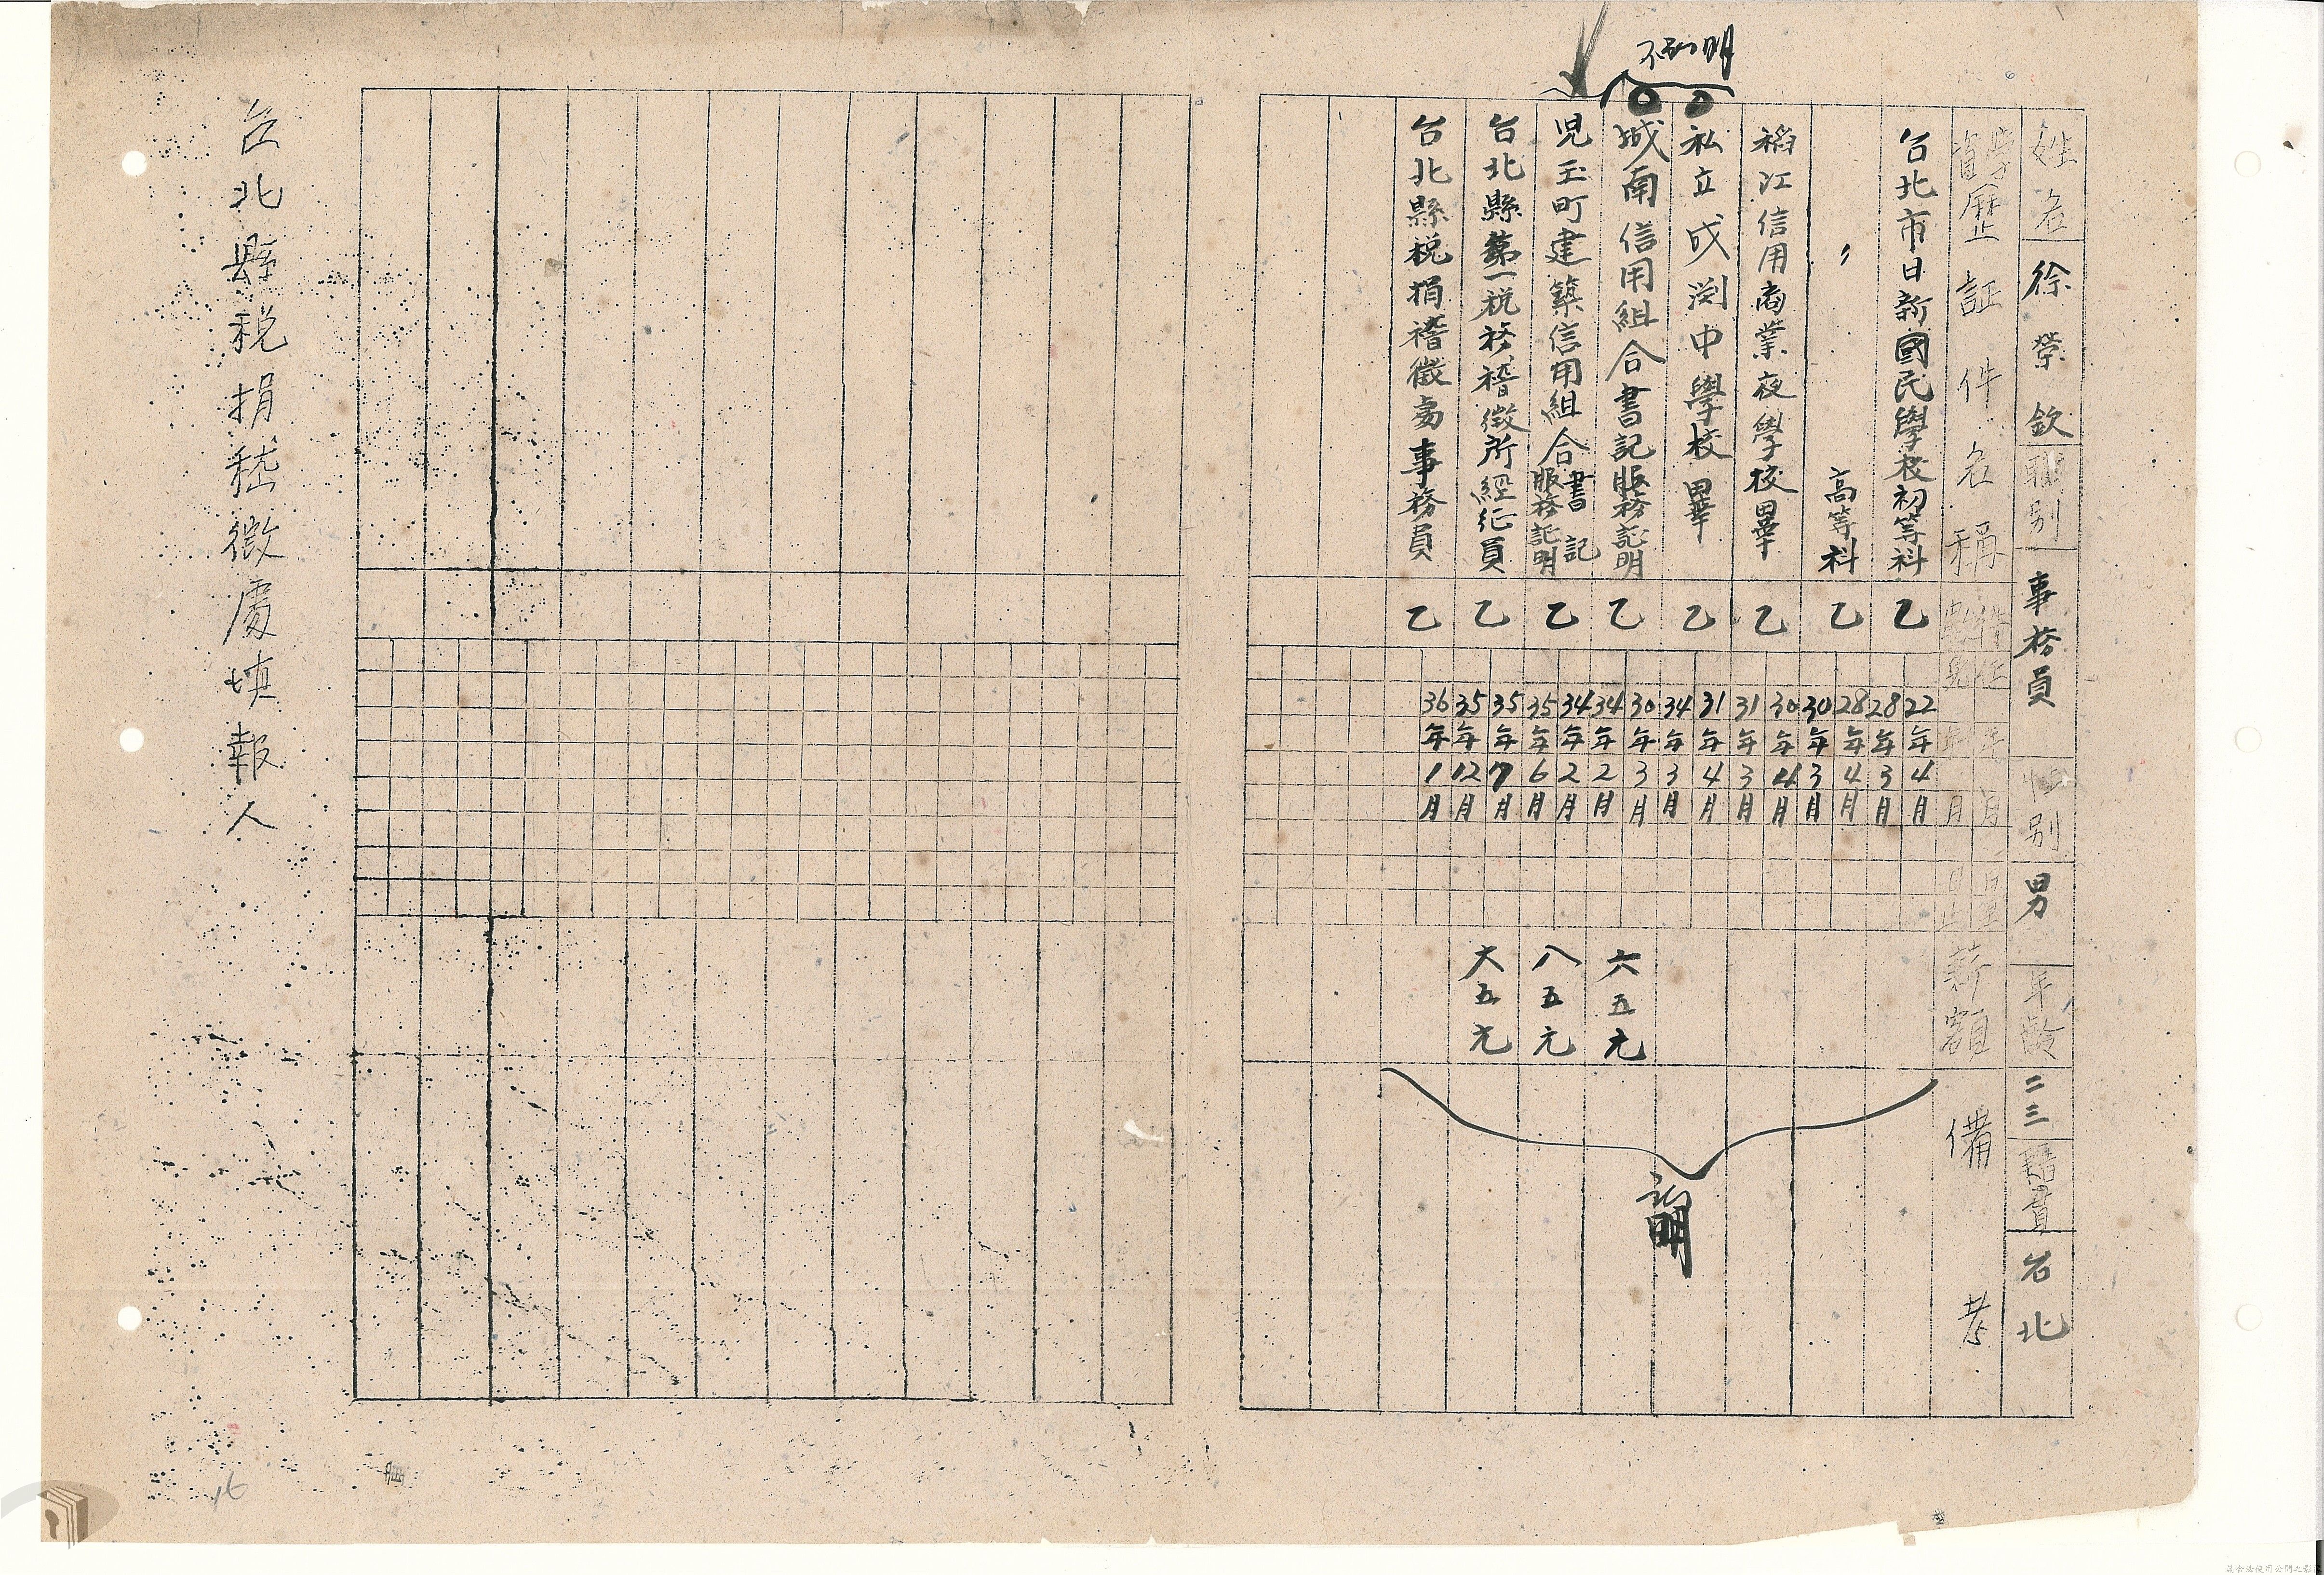 姓名 徐榮欽 職別 事務員 性別 男 年齡 二三 籍貫 台北
學歷証件名稱 年月日起 年月日止 薪額 備考
台北市日新國民學校初等科 乙 22年4月 28年3月
〃 高等科 乙 28年4月 30年3月
稻江信用商業夜學校畢 乙 30年4月 31年3月
私立成淵中學校畢 乙 31年4月 34年3月
城南信用組合書記服務証明 乙 30年3月 34年2月 六五元
児玉町建築信用組合書記服務証明 乙 34年2月 35年6月 八五元
台北縣第一税務稽徵所經征員 乙 35年7月 35年12月 大五元
台北縣税捐稽徵處事務員 乙 36年1月
証明
台北縣税捐嵇徵處填報人
16
請合法使用公開之影像